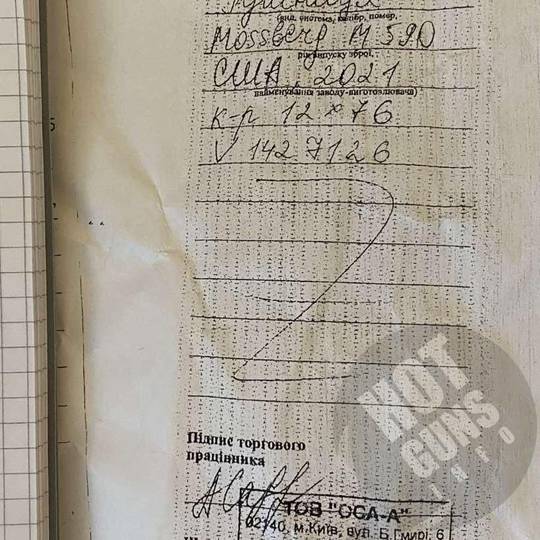 (вид, система, калібр, номер,
Mossberg M 590
рік випуску зброї,
США, 2021
найменування заводу-виготовлювача)
к-р 12 х 76
V 1427126
Підпис торгового
працівника
ТОВ "ОСА-А"
02140, м.Київ, вул. Б.Гмирі, 6
HOT
GUNS
INFO